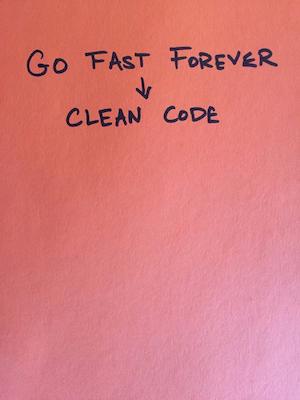 GO FAST FOREVER
↓
CLEAN CODE